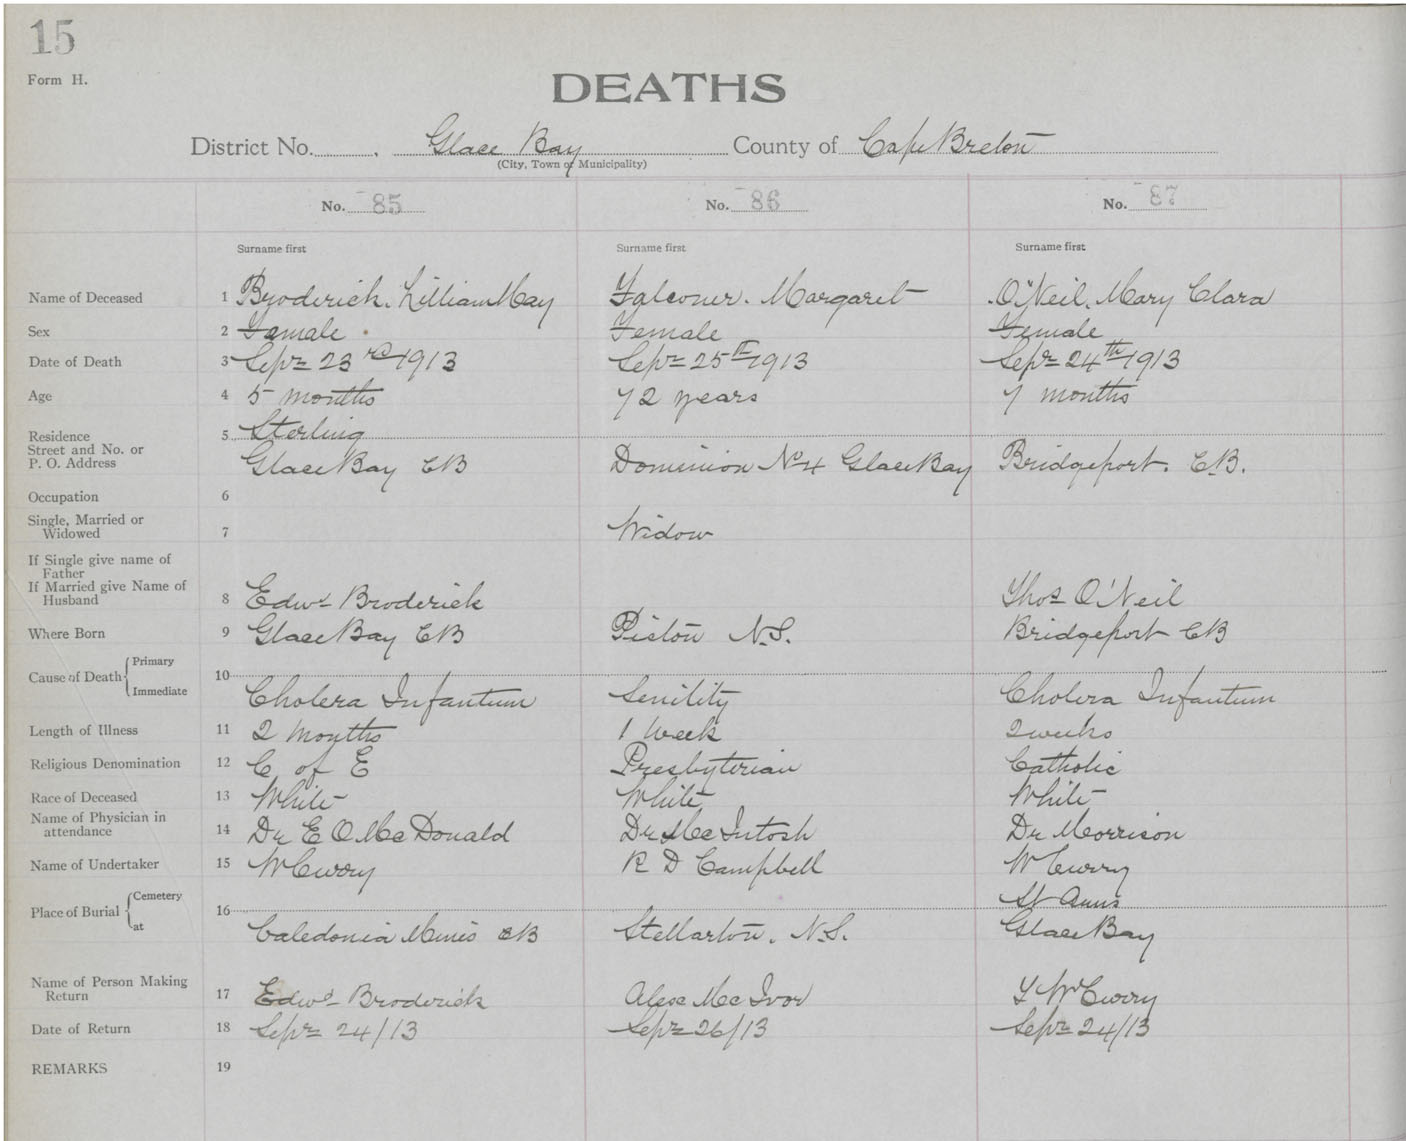 15
Form H.
DEATHS
District No. , Glace Bay County of Cape Breton
(City, Town or Municipality)
No. 85 No. 86 No. 87
Surname first Surname first Surname first
Name of Deceased 1 Broderick. Lillian May Falconer. Margaret O'Neil. Mary Clara
Sex 2 Female Female Female
Date of Death 3 Sepr 23rd 1913 Sepr 25th 1913 Sepr 24th 1913
Age 4 5 months 72 years 7 months
Residence 5 Sterling
Street and No. or
P. O. Address Glace Bay CB Dominion No 4 Glace Bay Bridgeport. C.B.
Occupation 6
Single, Married or
Widowed 7 Widow
If Single give name of
Father
If Married give Name of
Husband 8 Edwd Broderick Thos O'Neil
Where Born 9 Glace Bay CB Pictou N.S. Bridgeport CB
Cause of Death { Primary 10
Immediate Cholera Infantum Senility Cholera Infantum
Length of Illness 11 2 months 1 week 2 weeks
Religious Denomination 12 C of E Presbyterian Catholic
Race of Deceased 13 White White White
Name of Physician in
attendance 14 Dr E O McDonald Dr McIntosh Dr Morrison
Name of Undertaker 15 W Curry R D Campbell W Curry
Place of Burial { Cemetery 16 St Anns
at Caledonia Mines CB Stellarton. N.S. Glace Bay
Name of Person Making
Return 17 Edwd Broderick Alex McIvor Curry
Date of Return 18 Sepr 24/13 Sepr 26/13 Sepr 24/13
REMARKS 19